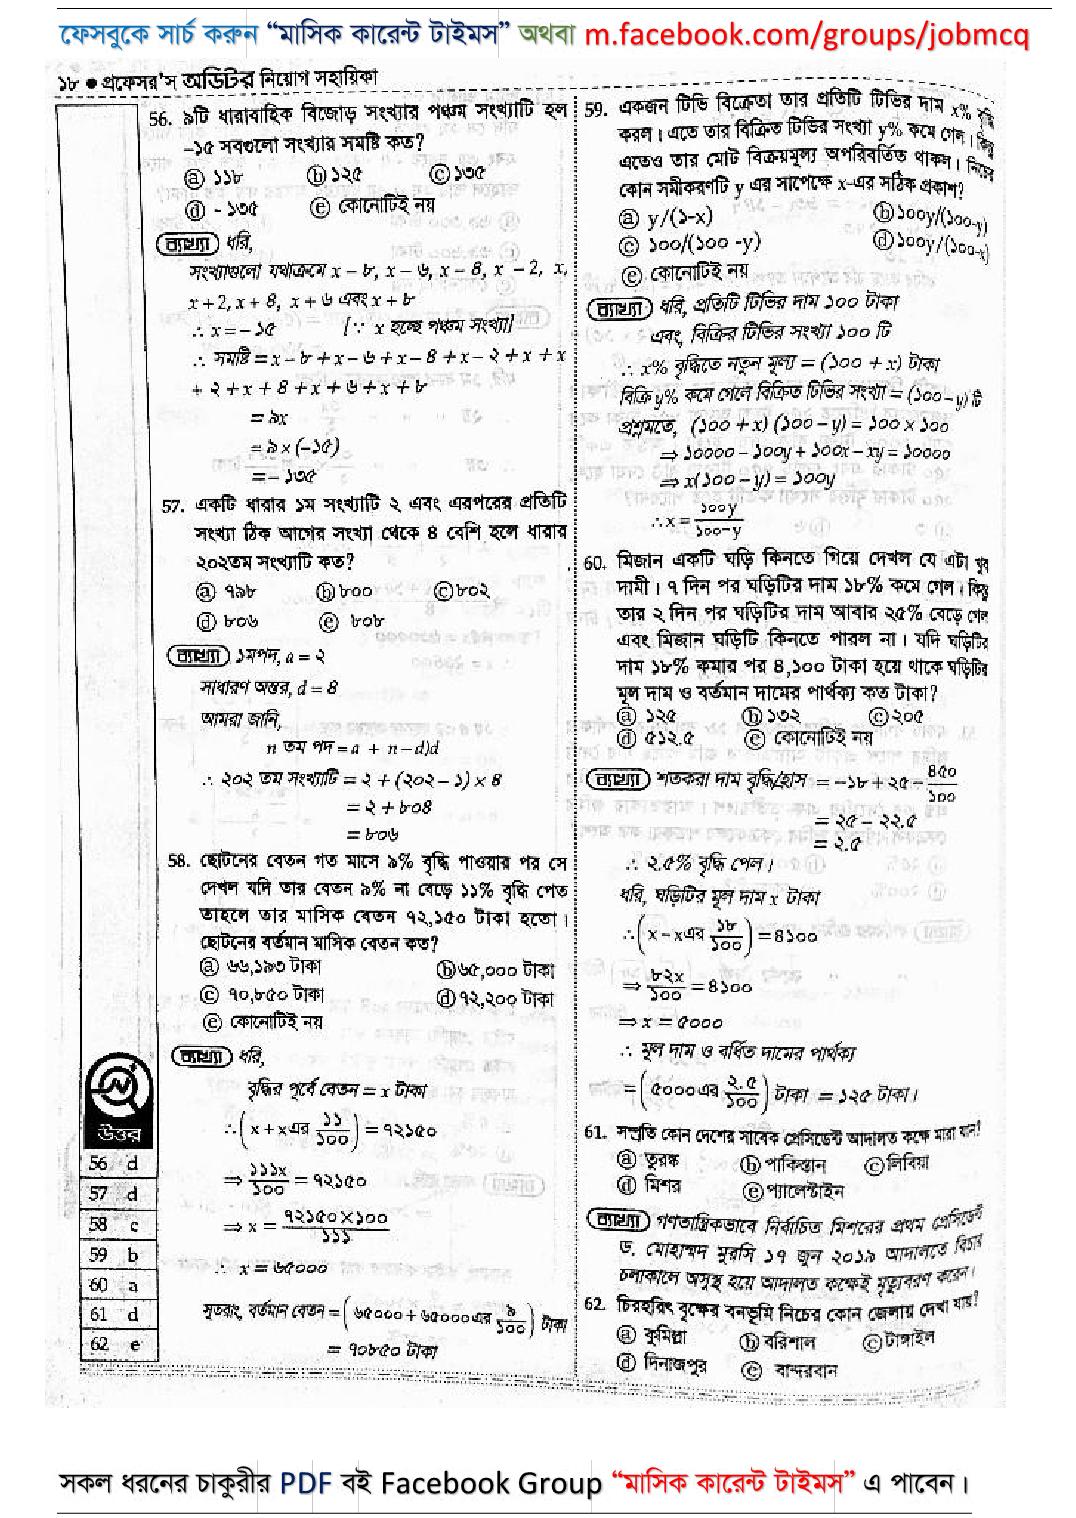 ফেসবুকে সার্চ করুন “মাসিক কারেন্ট টাইমস” অথবা m.facebook.com/groups/jobmcq
১৮ ● প্রফেসর'স অডিটর নিয়োগ সহায়িকা
56. ৯টি ধারাবাহিক বিজোড় সংখ্যার পঞ্চম সংখ্যাটি হল
–১৫ সবগুলো সংখ্যার সমষ্টি কত?
ⓐ ১১৮ ⓑ ১২৫ ⓒ ১৩৫
ⓓ - ১৩৫ ⓔ কোনোটিই নয়
ব্যাখ্যা ধরি,
সংখ্যাগুলো যথাক্রমে x – ৮, x – ৬, x – 8, x – 2, x,
x + 2, x + 8, x + ৬ এবং x + ৮
∴ x = – ১৫ [∵ x হচ্ছে পঞ্চম সংখ্যা]
∴ সমষ্টি = x – ৮ + x – ৬ + x – 8 + x – ২ + x + x
+ ২ + x + 8 + x + ৬ + x + ৮
= ৯x
= ৯ × (–১৫)
= – ১৩৫
57. একটি ধারার ১ম সংখ্যাটি ২ এবং এরপরের প্রতিটি
সংখ্যা ঠিক আগের সংখ্যা থেকে ৪ বেশি হলে ধারার
২০২তম সংখ্যাটি কত?
ⓐ ৭৯৮ ⓑ ৮০০ ⓒ ৮০২
ⓓ ৮০৬ ⓔ ৮০৮
ব্যাখ্যা ১মপদ, a = ২
সাধারণ অন্তর, d = ৪
আমরা জানি,
n তম পদ = a + n – d)d
∴ ২০২ তম সংখ্যাটি = ২ + (২০২ – ১) × ৪
= ২ + ৮০৪
= ৮০৬
58. ছোটনের বেতন গত মাসে ৯% বৃদ্ধি পাওয়ার পর সে
দেখল যদি তার বেতন ৯% না বেড়ে ১১% বৃদ্ধি পেত
তাহলে তার মাসিক বেতন ৭২,১৫০ টাকা হতো।
ছোটনের বর্তমান মাসিক বেতন কত?
ⓐ ৬৬,১৯৩ টাকা ⓑ ৬৫,০০০ টাকা
ⓒ ৭০,৮৫০ টাকা ⓓ ৭২,২০০ টাকা
ⓔ কোনোটিই নয়
ব্যাখ্যা ধরি,
বৃদ্ধির পূর্বে বেতন = x টাকা
∴ (x + x এর ১১/১০০) = ৭২১৫০
⇒ ১১১x/১০০ = ৭২১৫০
⇒ x = ৭২১৫০×১০০/১১১
∴ x = ৬৫০০০
সুতরাং, বর্তমান বেতন = (৬৫০০০ + ৬৫০০০ এর ৯/১০০) টাকা
= ৭০৮৫০ টাকা
উত্তর
56 d
57 d
58 c
59 b
60 a
61 d
62 e
59. একজন টিভি বিক্রেতা তার প্রতিটি টিভির দাম x% বৃদ্ধি
করল। এতে তার বিক্রিত টিভির সংখ্যা y% কমে গেল। কিন্তু
এতেও তার মোট বিক্রয়মূল্য অপরিবর্তিত থাকল। নিচের
কোন সমীকরণটি y এর সাপেক্ষে x-এর সঠিক প্রকাশ?
ⓐ y/(১-x) ⓑ ১০০y/(১০০-y)
ⓒ ১০০/(১০০ -y) ⓓ ১০০y/(১০০-x)
ⓔ কোনোটিই নয়
ব্যাখ্যা ধরি, প্রতিটি টিভির দাম ১০০ টাকা
এবং, বিক্রির টিভির সংখ্যা ১০০ টি
∴ x% বৃদ্ধিতে নতুন মূল্য = (১০০ + x) টাকা
বিক্রি y% কমে গেলে বিক্রিত টিভির সংখ্যা = (১০০ – y) টি
প্রশ্নমতে, (১০০ + x) (১০০ – y) = ১০০ × ১০০
⇒ ১০০০০ – ১০০y + ১০০x – xy = ১০০০০
⇒ x(১০০ – y) = ১০০y
∴ x = ১০০y/১০০–y
60. মিজান একটি ঘড়ি কিনতে গিয়ে দেখল যে এটা খুব
দামী। ৭ দিন পর ঘড়িটির দাম ১৮% কমে গেল। কিন্তু
তার ২ দিন পর ঘড়িটির দাম আবার ২৫% বেড়ে গেল
এবং মিজান ঘড়িটি কিনতে পারল না। যদি ঘড়িটির
দাম ১৮% কমার পর ৪,১০০ টাকা হয়ে থাকে ঘড়িটির
মূল দাম ও বর্তমান দামের পার্থক্য কত টাকা?
ⓐ ১২৫ ⓑ ১৩২ ⓒ ২০৫
ⓓ ৫১২.৫ ⓔ কোনোটিই নয়
ব্যাখ্যা শতকরা দাম বৃদ্ধি/হ্রাস = –১৮ + ২৫ – ৪৫০/১০০
= ২৫ – ২২.৫
= ২.৫
∴ ২.৫% বৃদ্ধি পেল।
ধরি, ঘড়িটির মূল দাম x টাকা
∴ (x – x এর ১৮/১০০) = ৪১০০
⇒ ৮২x/১০০ = ৪১০০
⇒ x = ৫০০০
∴ মূল দাম ও বর্ধিত দামের পার্থক্য
= (৫০০০ এর ২.৫/১০০) টাকা = ১২৫ টাকা।
61. সম্প্রতি কোন দেশের সাবেক প্রেসিডেন্ট আদালত কক্ষে মারা যান?
ⓐ তুরস্ক ⓑ পাকিস্তান ⓒ লিবিয়া
ⓓ মিশর ⓔ প্যালেস্টাইন
ব্যাখ্যা গণতান্ত্রিকভাবে নির্বাচিত মিশরের প্রথম প্রেসিডেন্ট
ড. মোহাম্মদ মুরসি ১৭ জুন ২০১৯ আদালতে বিচার
চলাকালে অসুস্থ হয়ে আদালত কক্ষেই মৃত্যুবরণ করেন।
62. চিরহরিৎ বৃক্ষের বনভূমি নিচের কোন জেলায় দেখা যায়?
ⓐ কুমিল্লা ⓑ বরিশাল ⓒ টাঙ্গাইল
ⓓ দিনাজপুর ⓔ বান্দরবান
সকল ধরনের চাকুরীর PDF বই Facebook Group “মাসিক কারেন্ট টাইমস” এ পাবেন।